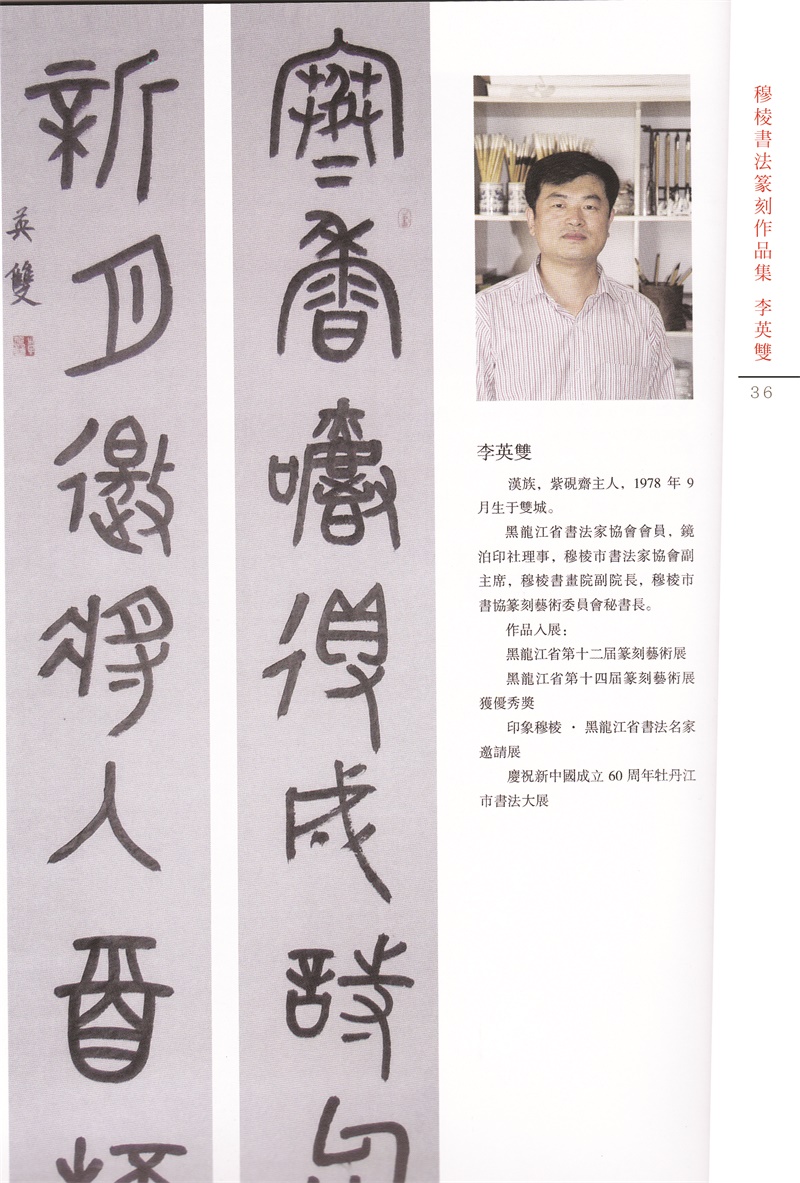 穆棱書法篆刻作品集 李英雙
36
寒香嚼得成詩句
新月邀將入酒
英雙
李英雙
漢族，紫硯齋主人，1978 年 9
月生于雙城。
黑龍江省書法家協會會員，鏡
泊印社理事，穆棱市書法家協會副
主席，穆棱書畫院副院長，穆棱市
書協篆刻藝術委員會秘書長。
作品入展：
黑龍江省第十二屆篆刻藝術展
黑龍江省第十四屆篆刻藝術展
獲優秀獎
印象穆棱 · 黑龍江省書法名家
邀請展
慶祝新中國成立 60 周年牡丹江
市書法大展